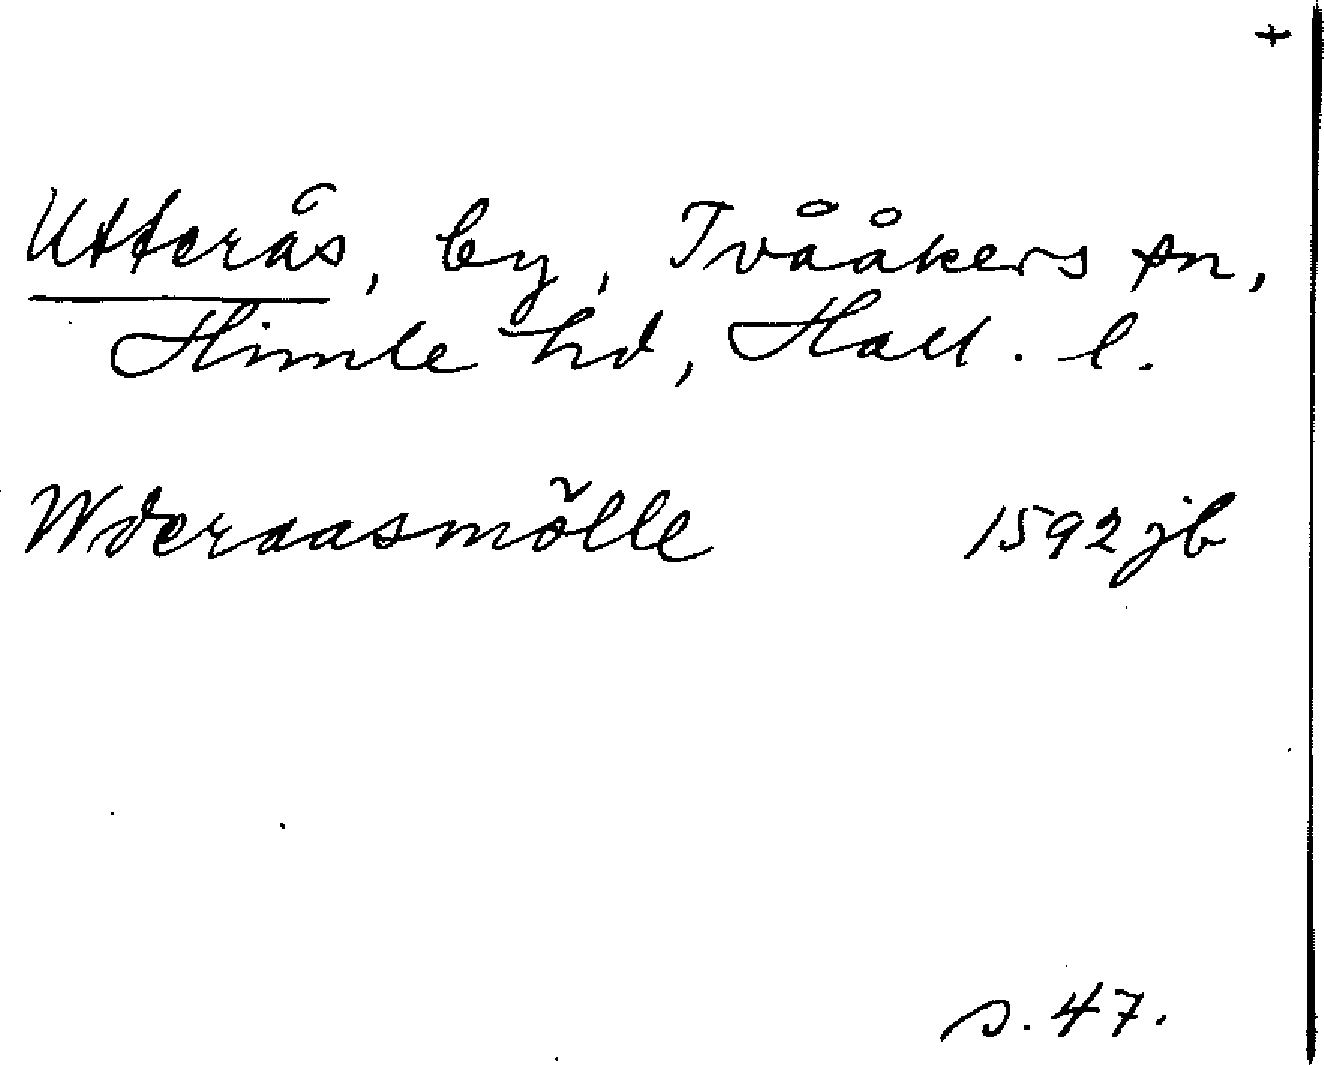 +
Utterås, by, Tvååkers sn,
Himle hd, Hall. l.
Wderaasmölle 1592 jb
s. 47.